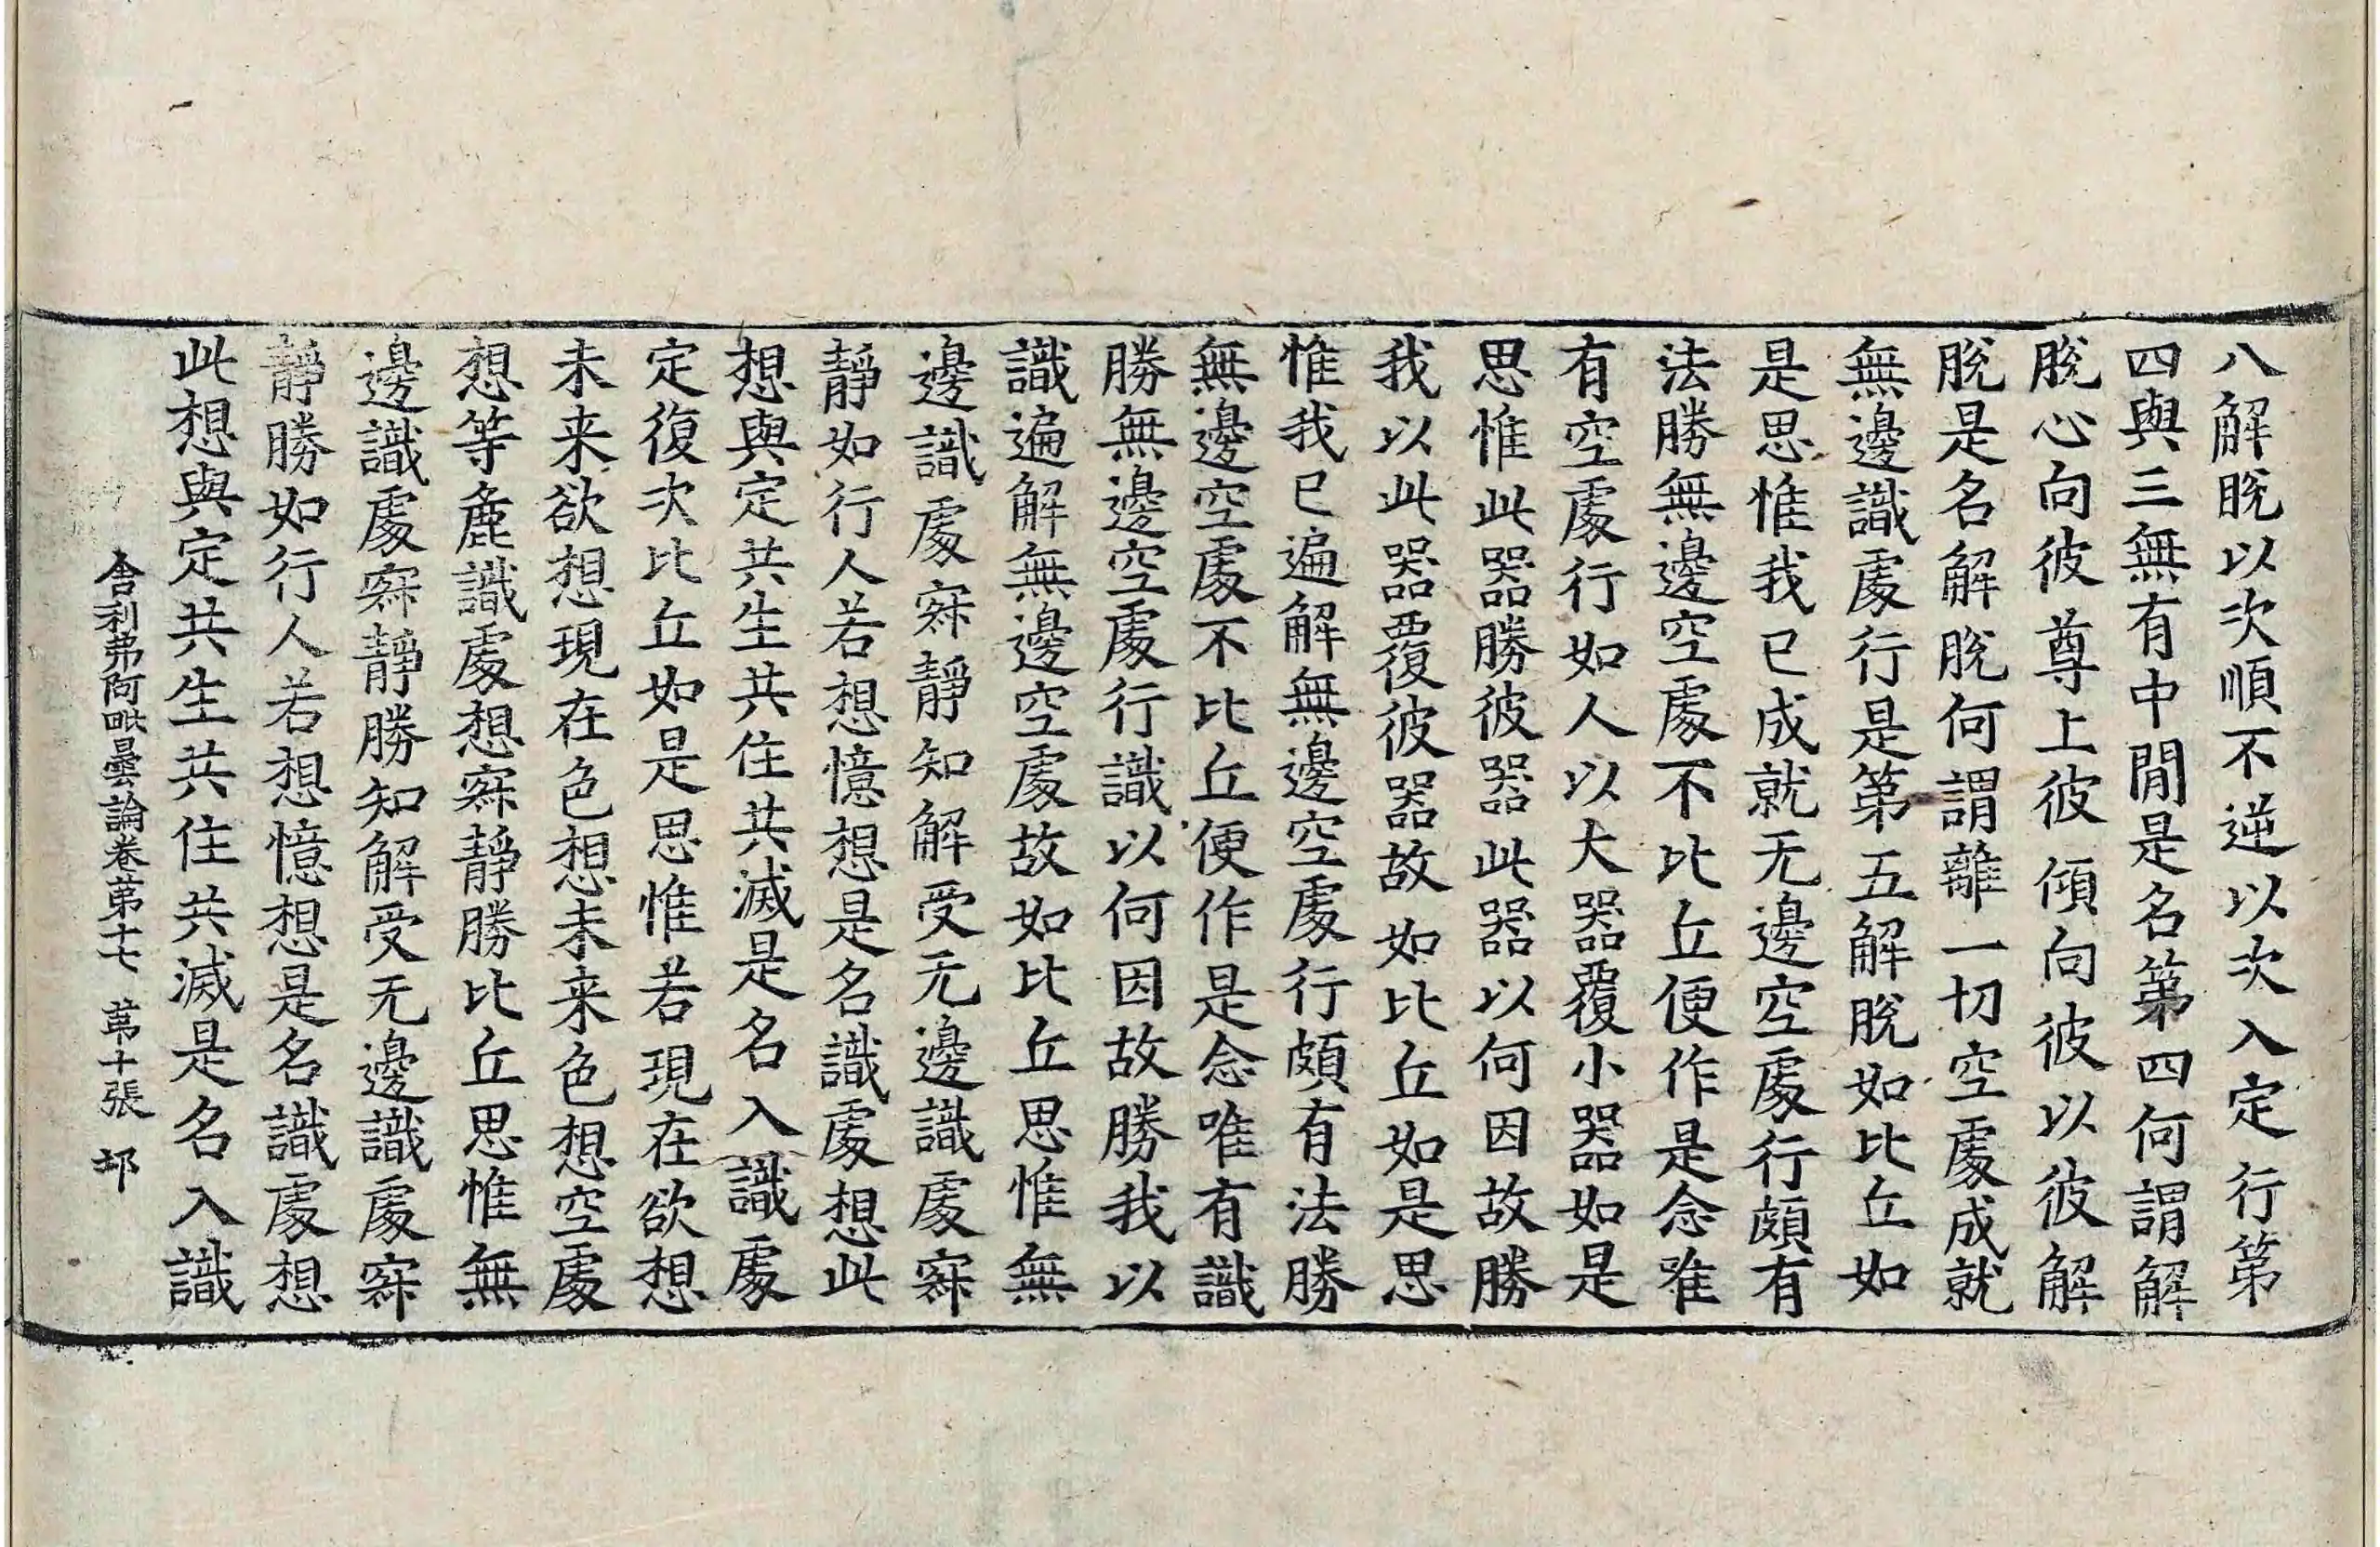 八解脫以次順不逆以次入定行第
四與三無有中閒是名第四何謂解
脫心向彼尊上彼傾向彼以彼解
脫是名解脫何謂離一切空處成就
無邊識處行是第五解脫如比丘如
是思惟我已成就无邊空處行頗有
法勝無邊空處不比丘便作是念唯
有空處行如人以大器覆小器如是
思惟此器勝彼器此器以何因故勝
我以此器覆彼器故如比丘如是思
惟我已遍解無邊空處行頗有法勝
無邊空處不比丘便作是念唯有識
勝無邊空處行識以何因故勝我以
識遍解無邊空處故如比丘思惟無
邊識處寂靜知解受无邊識處寂
靜如行人若想憶想是名識處想此
想與定共生共住共滅是名入識處
定復次比丘如是思惟若現在欲想
未来欲想現在色想未来色想空處
想等麁識處想寂靜勝比丘思惟無
邊識處寂靜勝知解受无邊識處寂
靜勝如行人若想憶想是名識處想
此想與定共生共住共滅是名入識
舍利弗阿毗曇論卷第十七 第十張 邙